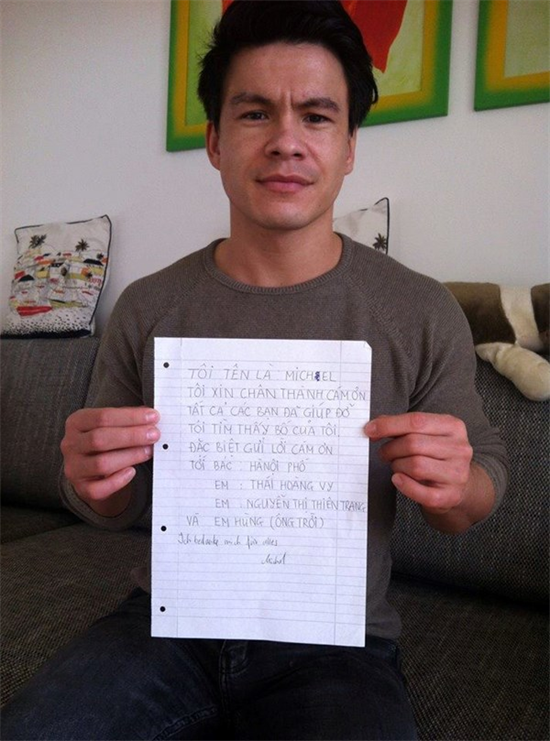 TÔI TÊN LÀ MICHAEL
TÔI XIN CHÂN THÀNH CÁM ƠN
TẤT CẢ CÁC BẠN ĐÃ GIÚP ĐỠ
TÔI TÌM THẤY BỐ CỦA TÔI.
ĐẶC BIỆT GỬI LỜI CÁM ƠN
TỚI BÁC : HANỘI PHỐ
EM : THÁI HOÀNG VY
EM : NGUYỄN THỊ THIÊN TRANG
VÀ EM HÙNG (ÔNG TRỜI)
Ich bedanke mich für alles